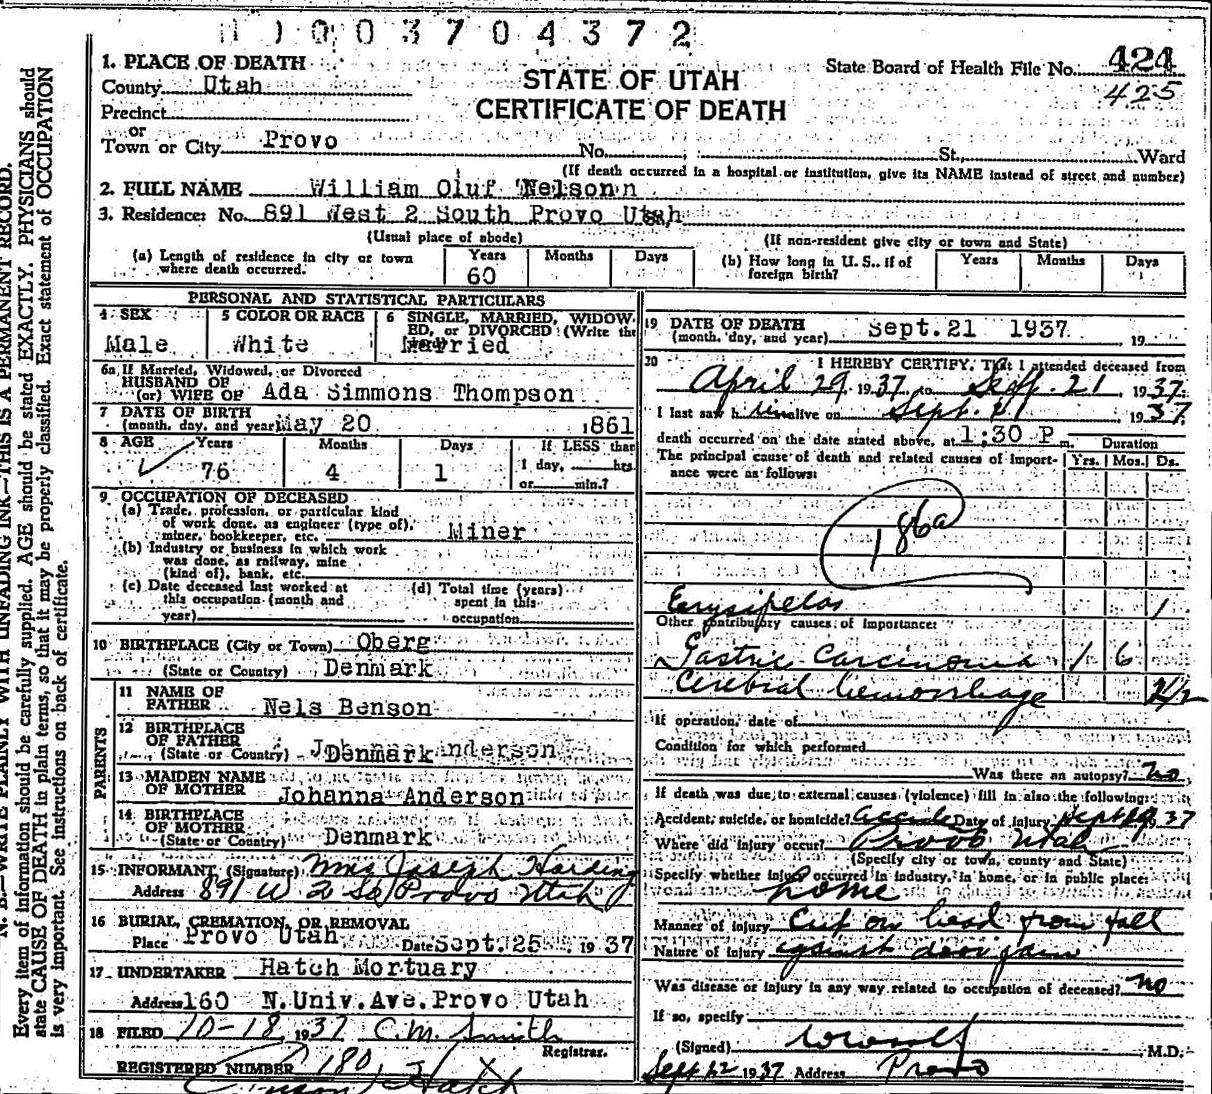 003704372
1. PLACE OF DEATH
County Utah
STATE OF UTAH
CERTIFICATE OF DEATH
State Board of Health File No. 424
425
Precinct
or
Town or City Provo No. ; St., Ward
(If death occurred in a hospital or institution, give its NAME instead of street and number)
2. FULL NAME William Oluf Nelson
3. Residence: No. 891 West 2 South Provo Utah
(Usual place of abode) (If non-resident give city or town and State)
(a) Length of residence in city or town where death occurred. Years 60 Months Days
(b) How long in U. S., if of foreign birth? Years Months Days
PERSONAL AND STATISTICAL PARTICULARS
4 SEX Male
5 COLOR OR RACE White
6 SINGLE, MARRIED, WIDOWED, or DIVORCED (Write the Married
6a If Married, Widowed, or Divorced
HUSBAND OF
(or) WIFE OF Ada Simmons Thompson
7 DATE OF BIRTH
(month, day, and year) May 20 1861
8 AGE Years 76 Months 4 Days 1
If LESS than
1 day, hrs.
or min.?
9 OCCUPATION OF DECEASED
(a) Trade, profession, or particular kind
of work done, as engineer (type of),
miner, bookkeeper, etc. Miner
(b) Industry or business in which work
was done, as railway, mine
(kind of), bank, etc.
(c) Date deceased last worked at
this occupation (month and
year)
(d) Total time (years)
spent in this
occupation
10 BIRTHPLACE (City or Town) Oberg
(State or Country) Denmark
PARENTS
11 NAME OF
FATHER Nels Benson
12 BIRTHPLACE
OF FATHER
(State or Country) Denmark
13 MAIDEN NAME
OF MOTHER Johanna Anderson
14 BIRTHPLACE
OF MOTHER
(State or Country) Denmark
15 INFORMANT (Signature) Mrs Joseph Harding
Address 891 W 2 So Provo Utah
16 BURIAL, CREMATION, OR REMOVAL
Place Provo Utah Date Sept. 25 1937
17 UNDERTAKER Hatch Mortuary
Address 160 N. Univ. Ave. Provo Utah
18 FILED 10-18, 1937 C.M. Smith
Registrar.
REGISTERED NUMBER 180
Hatch
19 DATE OF DEATH
(month, day, and year) Sept. 21 1937, 19
20 I HEREBY CERTIFY, That I attended deceased from
April 29 1937 to Sept. 21, 1937
I last saw him alive on Sept. 21 1937
death occurred on the date stated above, at 1:30 P m.
Duration
The principal cause of death and related causes of importance were as follows: Yrs. Mos. Ds.
186a
Erysipelas 1
Other contributory causes of importance:
Gastric Carcinoma 1 6
Cerebral hemorrhage
If operation, date of
Condition for which performed
Was there an autopsy? no
If death was due to external causes (violence) fill in also the following:
Accident, suicide, or homicide? Date of injury Sept 1937
Where did injury occur? Provo Utah
(Specify city or town, county and State)
Specify whether injury occurred in industry, in home, or in public place:
home
Manner of injury Cut on head from fall
Nature of injury against door jam
Was disease or injury in any way related to occupation of deceased? no
If so, specify
(Signed) M.D.
Sept 22 1937 Address Provo
N. B.—WRITE PLAINLY WITH UNFADING INK—THIS IS A PERMANENT RECORD.
Every item of information should be carefully supplied. AGE should be stated EXACTLY. PHYSICIANS should
state CAUSE OF DEATH in plain terms, so that it may be properly classified. Exact statement of OCCUPATION
is very important. See instructions on back of certificate.